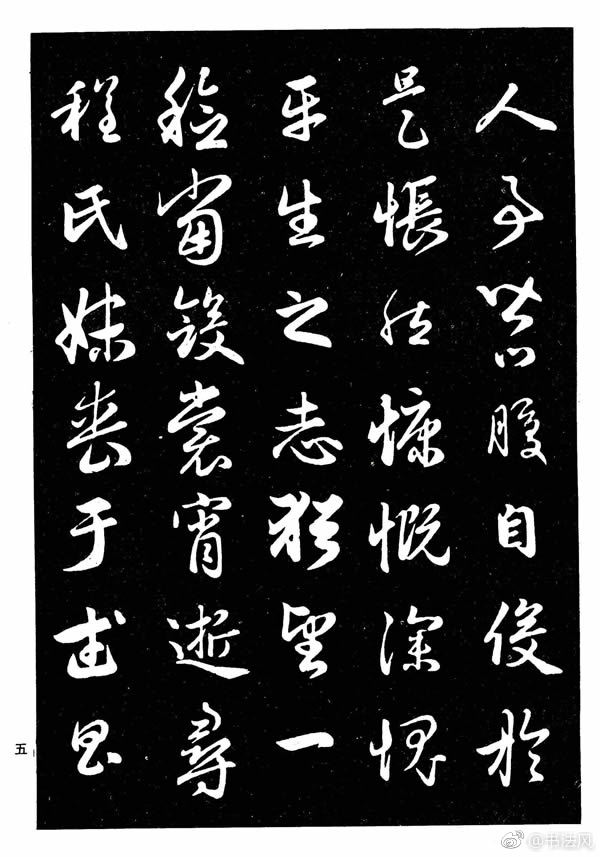 人事皆口腹自役於
是悵然慷慨深愧
平生之志猶望一
稔當斂裳宵逝尋
程氏妹喪于武昌
五
@书法风